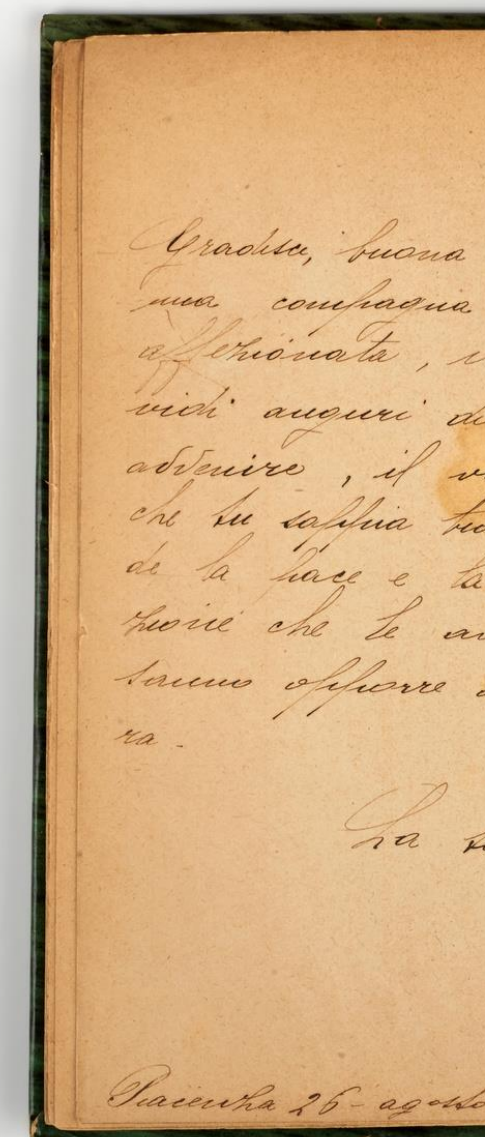 Gradisci, buona
mia compagna
affezionata, i
vidi auguri di
advenire, il v
che tu sappia tu
de la pace e la
zione che le an
sanno opporre a
ra.
La tu
Piacenza 26 - agosto